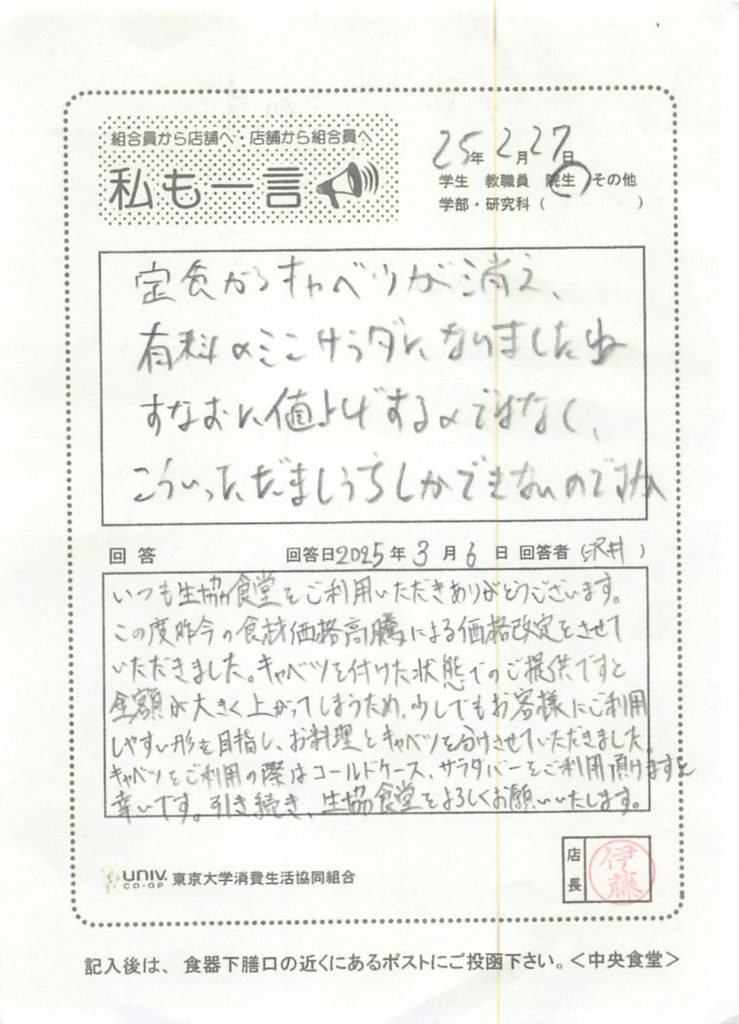 組合員から店舗へ・店舗から組合員へ
私も一言
25年2月27日
学生 教職員 院生 その他
学部・研究科( )
定食からキャベツが消え、
有料のミニサラダになりましたね
すなおに値上げするのではなく、
こういっただましうちしかできないのですか
回答 回答日2025年3月6日 回答者(沢井)
いつも生協食堂をご利用いただきありがとうございます。
この度昨今の食材価格高騰による価格改定をさせて
いただきました。キャベツを付けた状態でのご提供ですと
金額が大きく上がってしまうため、少しでもお客様にご利用
しやすい形を目指し、お料理とキャベツを分けさせていただきました。
キャベツをご利用の際はコールドケース、サラダバーをご利用頂けますと
幸いです。引き続き、生協食堂をよろしくお願いいたします。
UNIV.
CO-OP 東京大学消費生活協同組合
店長 伊藤
記入後は、食器下膳口の近くにあるポストにご投函下さい。<中央食堂>